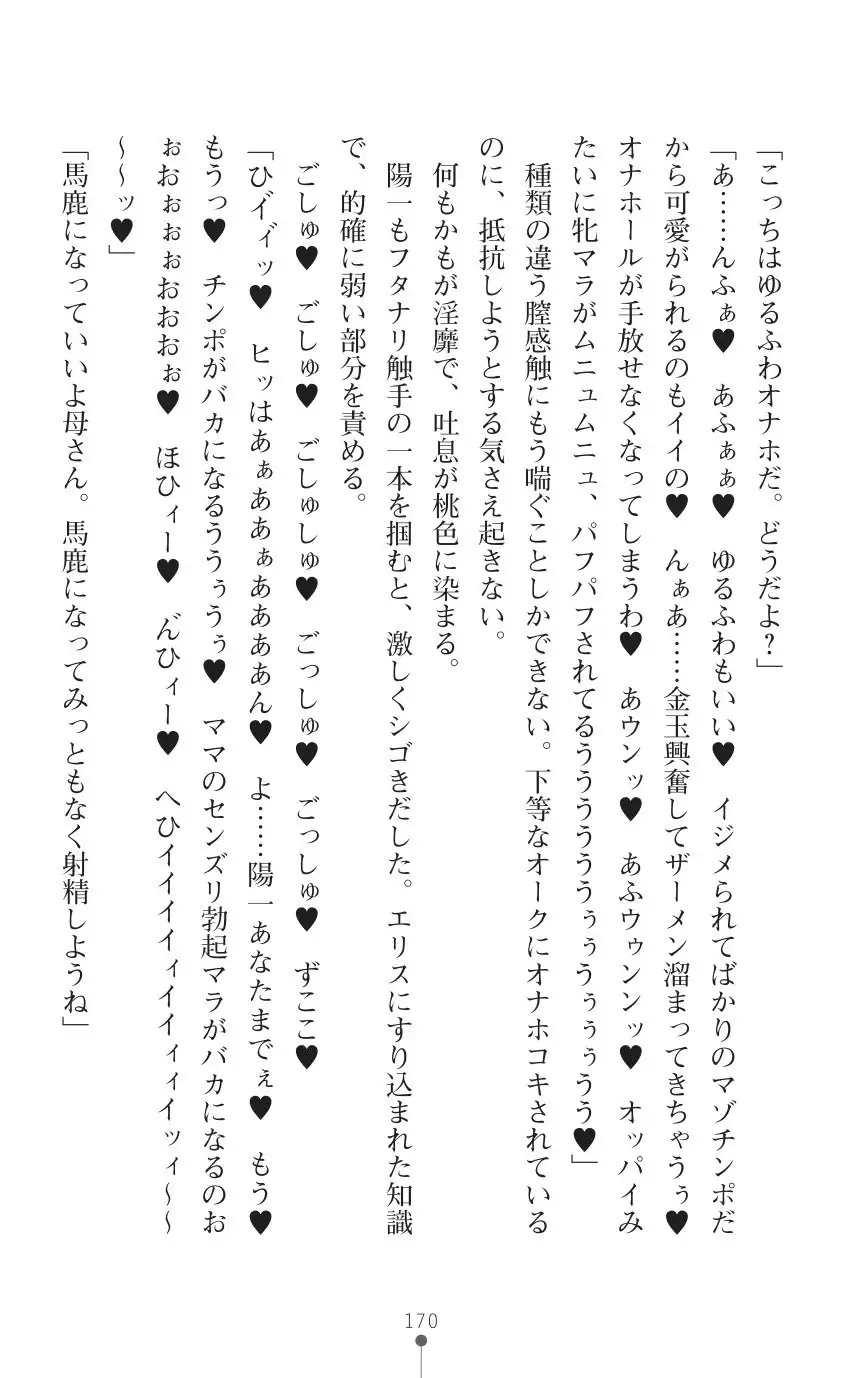 「こっちはゆるふわオナホだ。どうだよ?」
「あ……んふぁ♥　あふぁぁ♥　ゆるふわもいい♥　イジメられてばかりのマゾチンポだ
から可愛がられるのもイイの♥　んぁあ……金玉興奮してザーメン溜まってきちゃうぅ♥
オナホールが手放せなくなってしまうわ♥　あウンッ♥　あふウゥンンッ♥　オッパイみ
たいに牝マラがムニュムニュ、パフパフされてるうううううううぅぅうぅぅぅうう♥」
　種類の違う膣感触にもう喘ぐことしかできない。下等なオークにオナホコキされている
のに、抵抗しようとする気さえ起きない。
　何もかもが淫靡で、吐息が桃色に染まる。
　陽一もフタナリ触手の一本を掴むと、激しくシゴきだした。エリスにすり込まれた知識
で、的確に弱い部分を責める。
　ごしゅ♥　ごしゅ♥　ごしゅしゅ♥　ごっしゅ♥　ごっしゅ♥　ずここ♥
「ひイ゛ィ゛ッ♥　ヒッはあぁああぁああああん♥　よ……陽一あなたまでぇ♥　もう♥
もうっ♥　チンポがバカになるううぅうぅ♥　ママのセンズリ勃起マラがバカになるのお
ぉおぉぉぉおおおぉ♥　ほひィー♥　ん゛ひィー♥　へひイイイイィイイィィイッィ～～
～～ッ♥」
「馬鹿になっていいよ母さん。馬鹿になってみっともなく射精しようね」
170